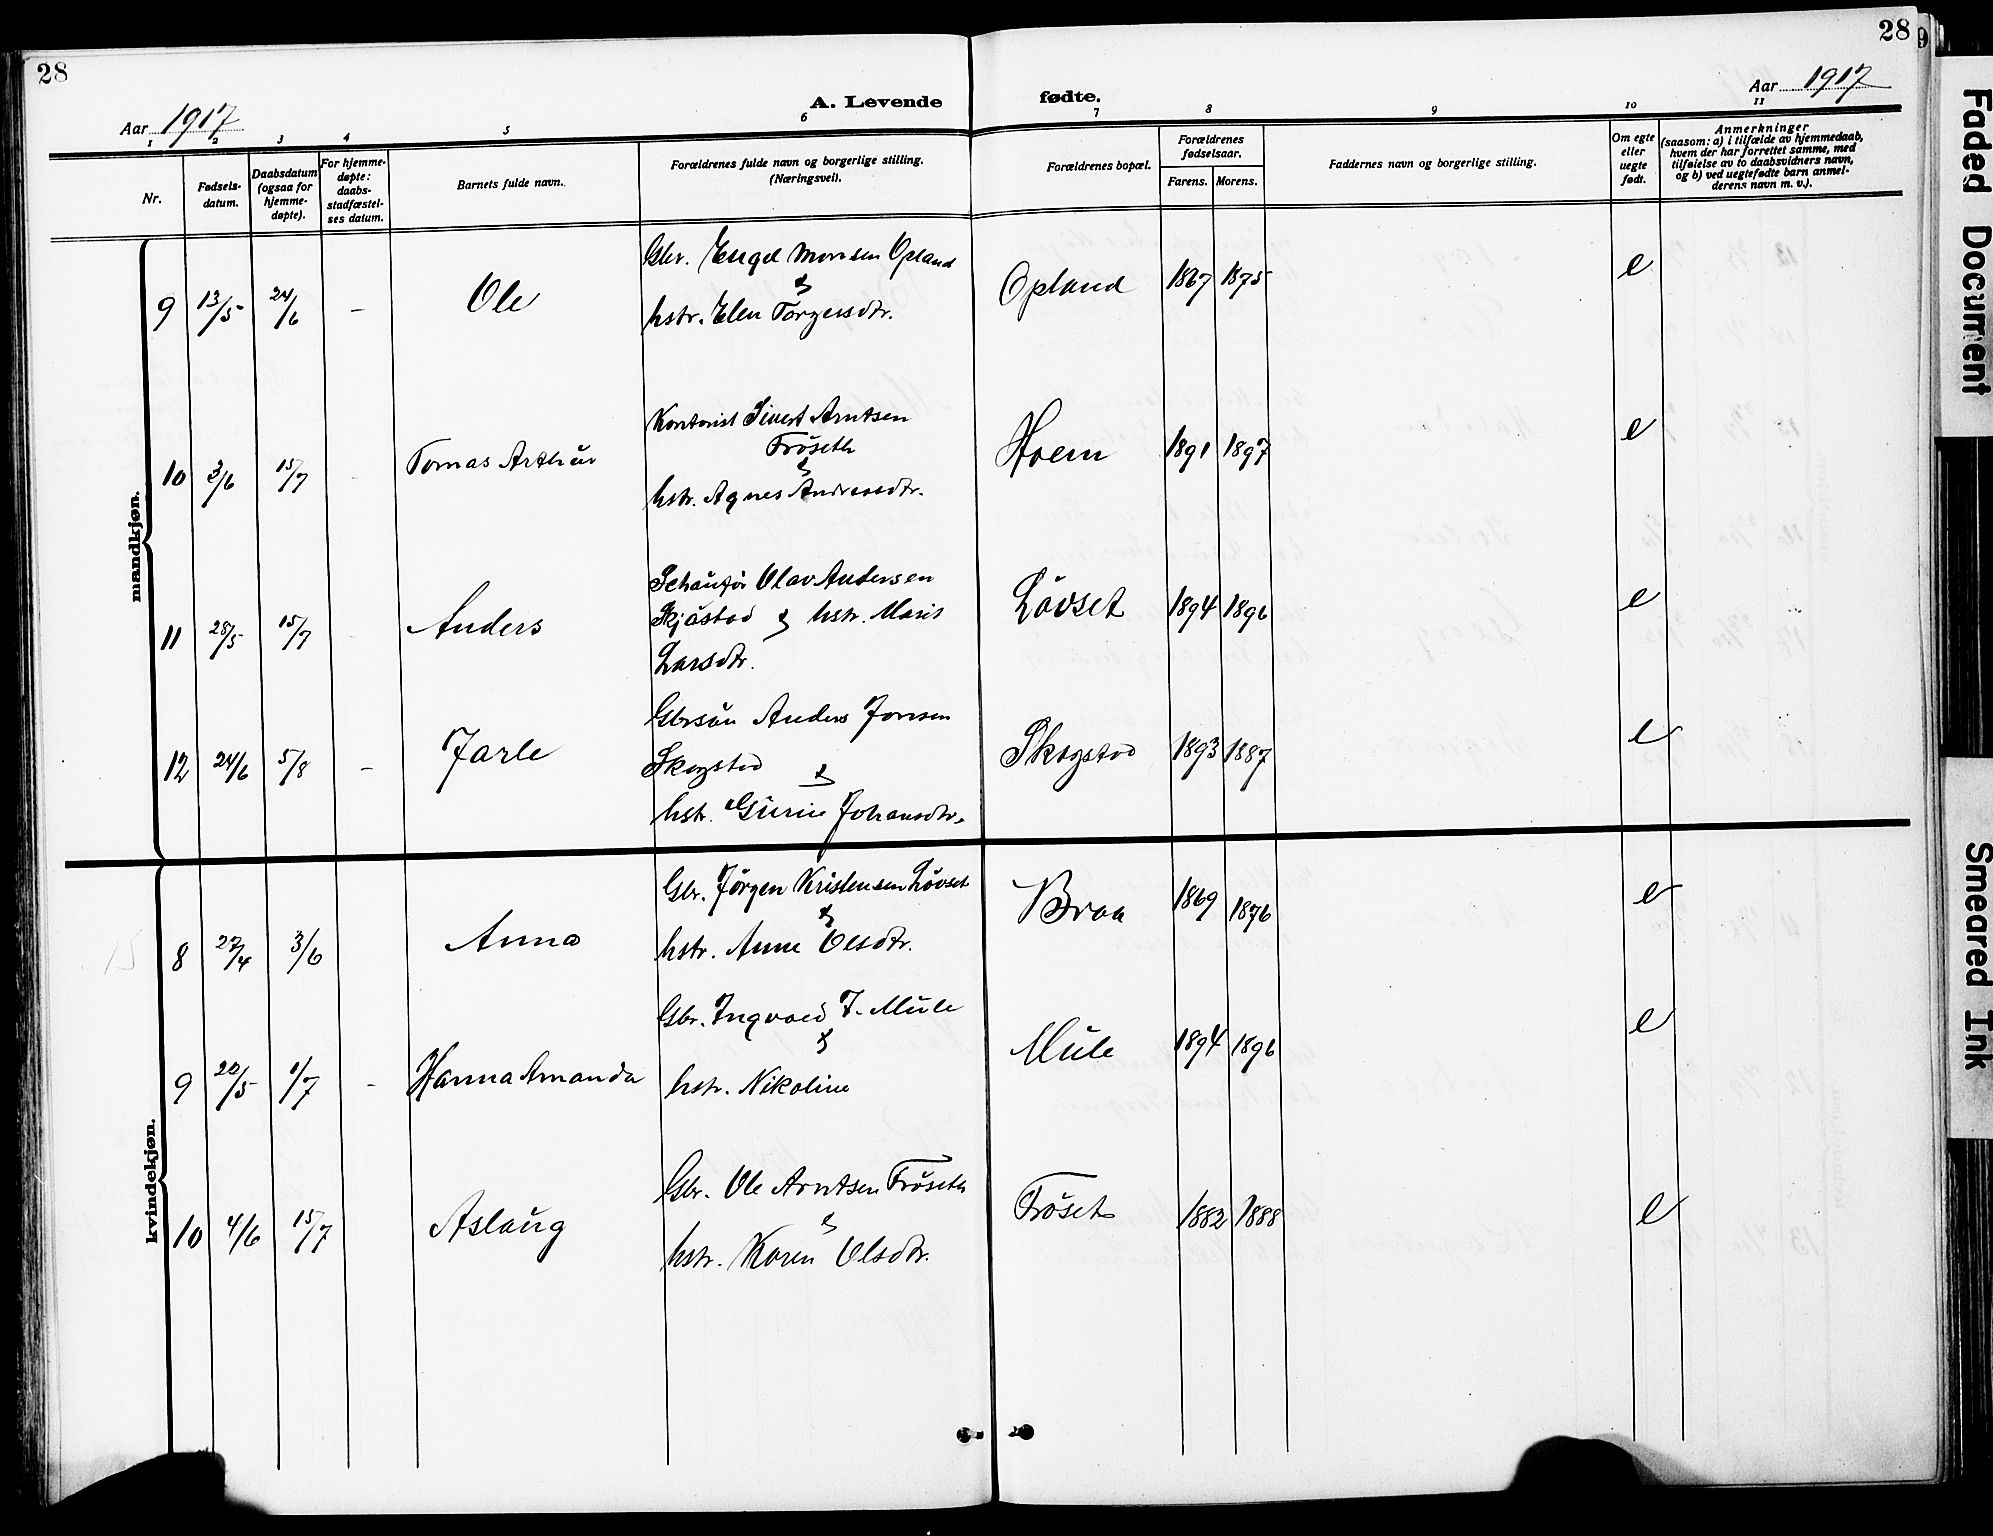 28
28
Aar 1917
A. Levende fødte.
Aar 1917
1 2 3 4 5 6 7 8 9 10 11
Nr.
Fødsels-
datum.
Daabsdatum
(ogsaa for
hjemme-
døpte).
For hjemme-
døpte:
daabs-
stadfæstel-
ses datum.
Barnets fulde navn.
Forældrenes fulde navn og borgerlige stilling.
(Næringsvei).
Forældrenes bopæl.
Forældrenes
fødselsaar.
Farens. Morens.
Faddernes navn og borgerlige stilling.
Om egte
eller
uegte
født.
Anmerkninger
(saasom: a) i tilfælde av hjemmedaab,
hvem der har forrettet samme, med
tilføielse av to daabsvidners navn,
og b) ved uegtefødte barn anmel-
derens navn m. v.).
mandkjøn.
9 13/5 24/6 - Ole
Gbr. Engel Monsen Opland
&
hstr. Elen Torgersdtr.
Opland 1867 1875 e
10 3/6 15/7 - Tomas Arthur
Kontorist Sivert Arntsen
Frøseth
&
hstr. Agnes Andreasdtr.
Hoem 1891 1897 e
11 28/5 15/7 - Anders
Schaufør Olav Andersen
Skjåstad & hstr. Marit
Larsdtr.
Løvset 1894 1896 e
12 24/6 5/8 - Jarle
Gbrsøn Anders Jonsen
Skogstad &
hstr. Gurine Johansdtr.
Skogstad 1893 1887 e
kvindekjøn.
8 27/4 3/6 Anna
Gbr. Jørgen Kristensen Løvset
&
hstr. Anne Olsdtr.
Braa 1869 1876 e
9 20/5 1/7 - Hanna Amanda
Gbr. Ingvald J. Mule
&
hstr. Nikoline
Mule 1894 1896 e
10 4/6 15/7 Aslaug
Gbr. Ole Arntsen Frøseth
&
hstr. Karen Olsdtr.
Frøset 1882 1888 e
Faded Document
Smeared Ink